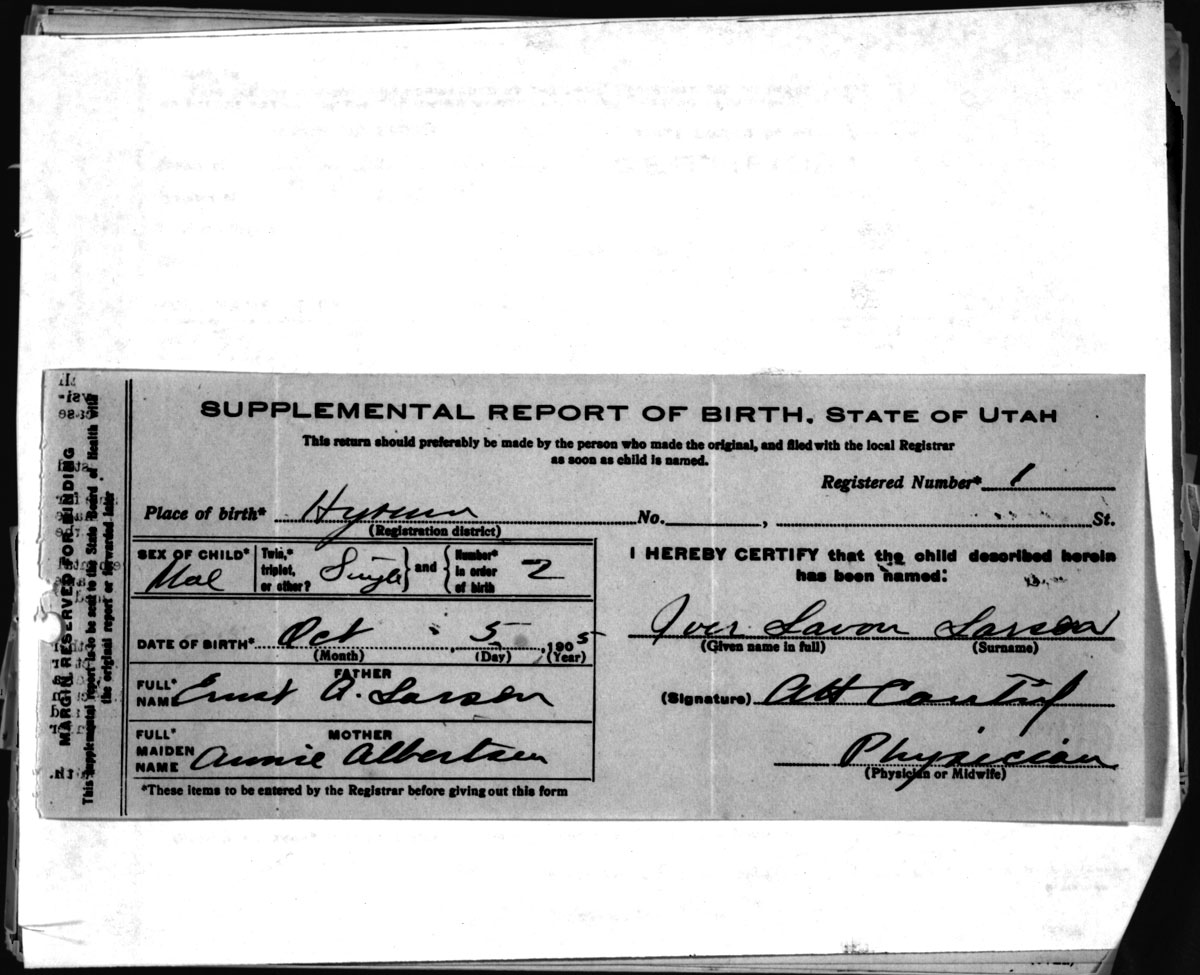 SUPPLEMENTAL REPORT OF BIRTH, STATE OF UTAH
This return should preferably be made by the person who made the original, and filed with the local Registrar
as soon as child is named.
Registered Number* 1
Place of birth* Hyrum No. , St.
(Registration district)
MARGIN RESERVED FOR BINDING
This supplemental report is to be sent to the State Board of Health with
the original report or forwarded later
SEX OF CHILD* Mal
Twin,* triplet, or other? Single and Number* in order of birth 2
DATE OF BIRTH* Oct 5, 1905
(Month) (Day) (Year)
FATHER
FULL* NAME Ernst A. Larsen
MOTHER
FULL* MAIDEN NAME Annie Albertsen
*These items to be entered by the Registrar before giving out this form
I HEREBY CERTIFY that the child described herein
has been named:
Iver Lavon Larsen
(Given name in full) (Surname)
(Signature)
Physician
(Physician or Midwife)